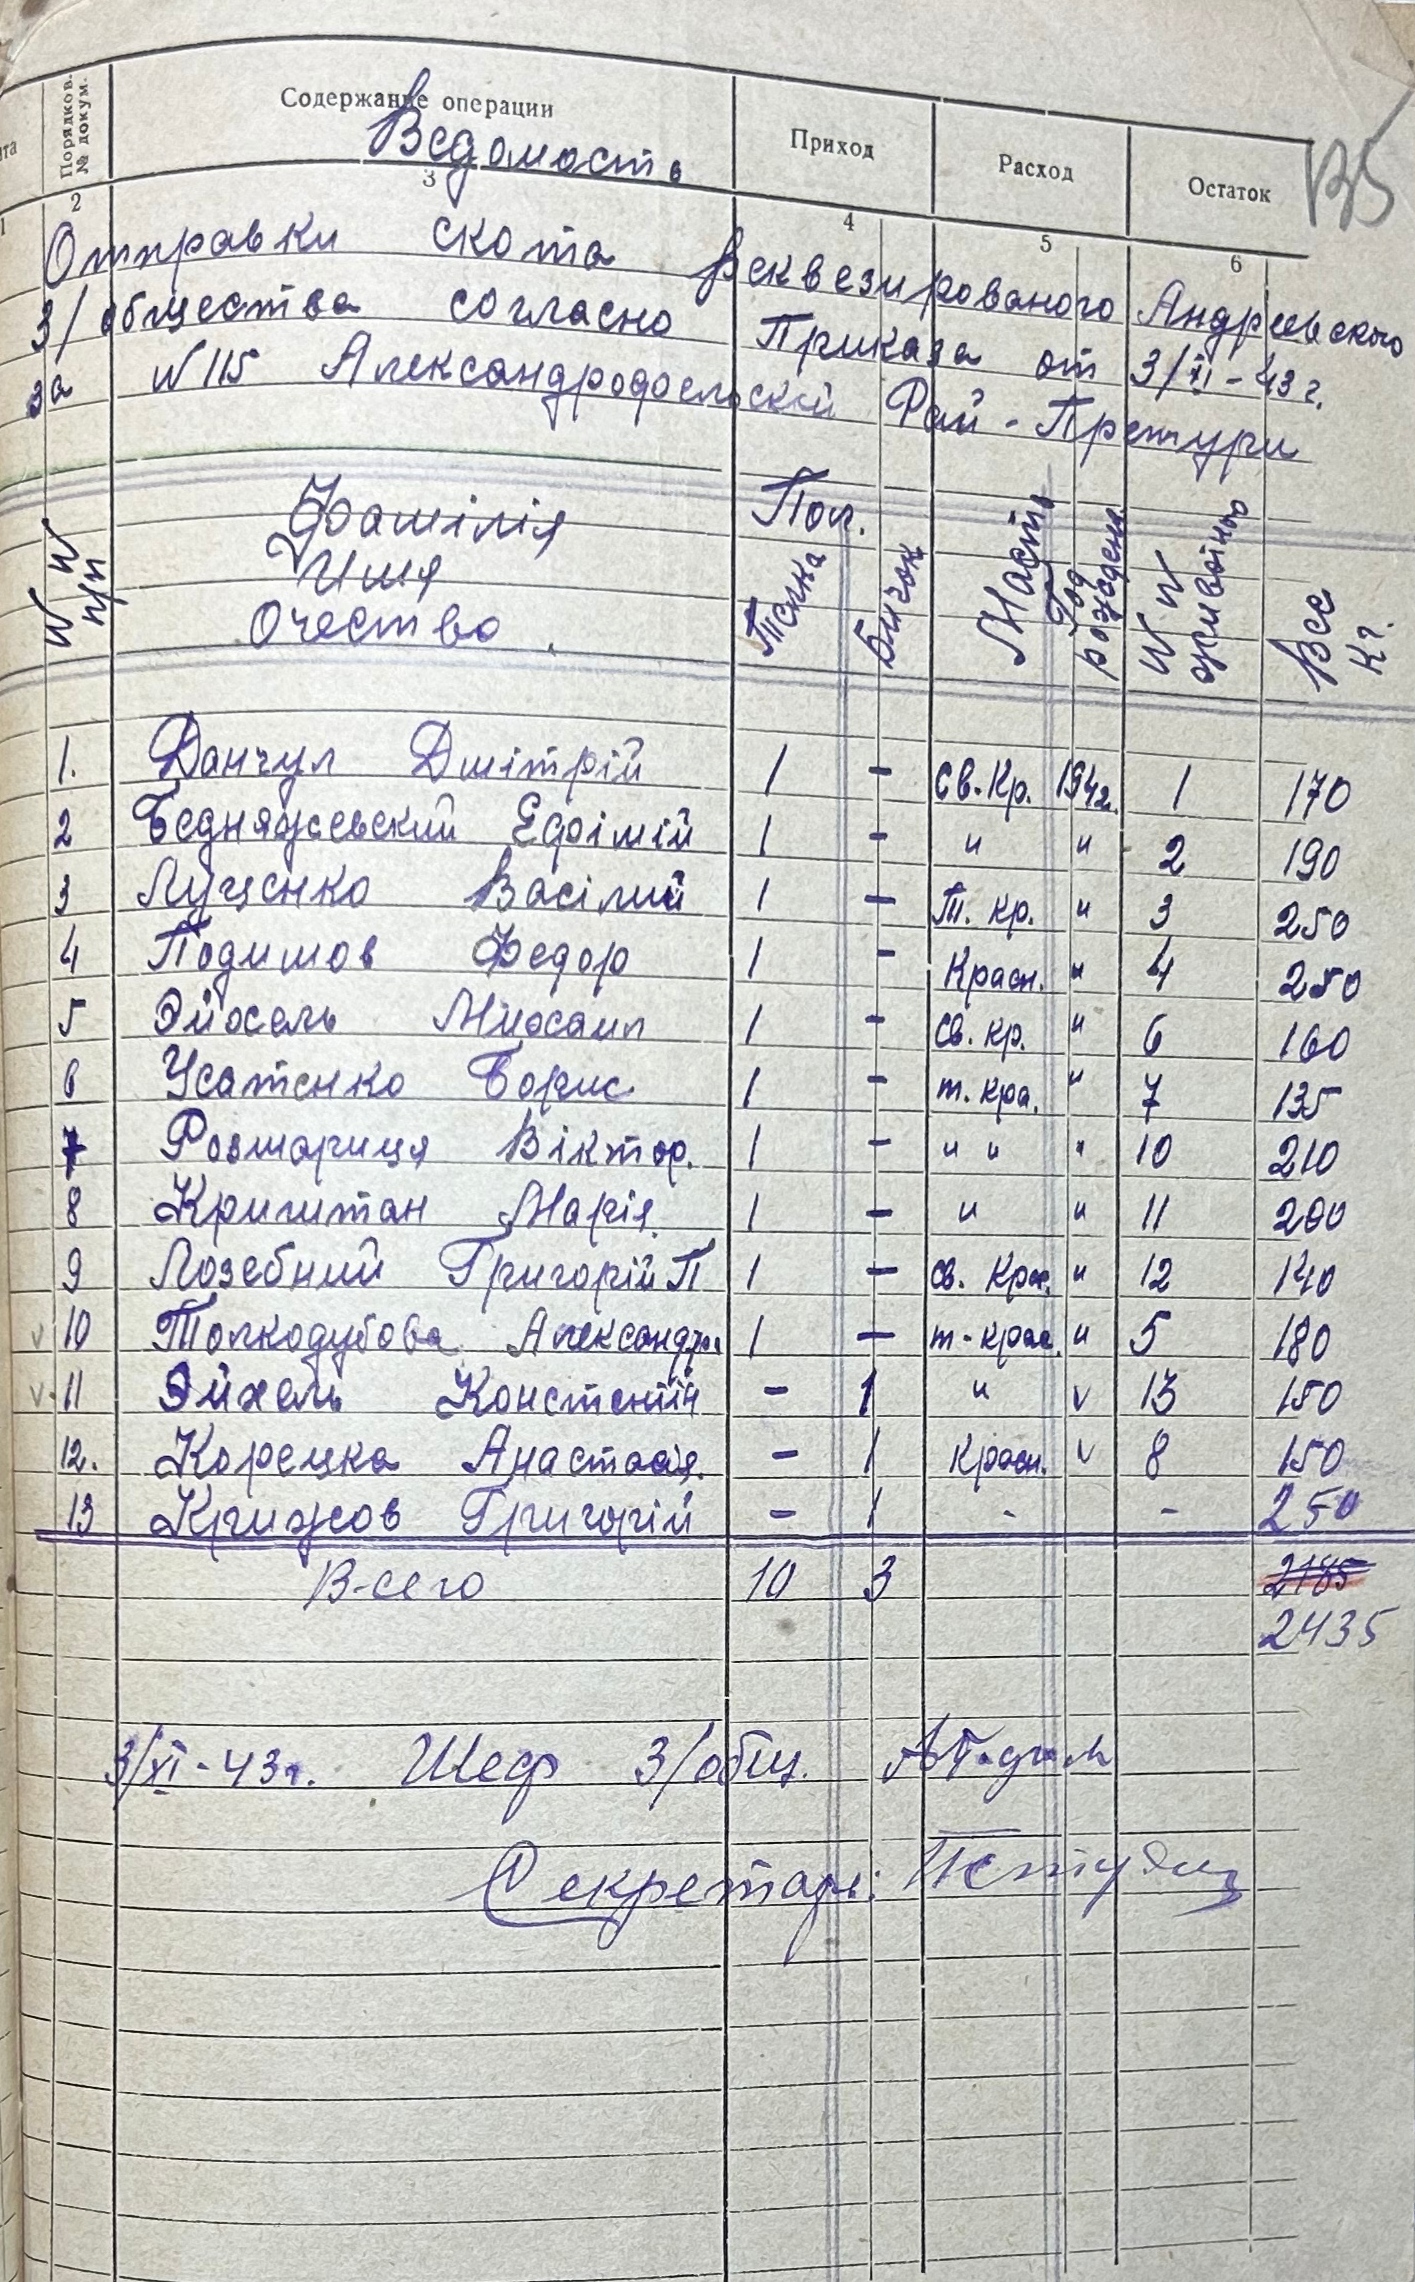 та Порядков. № докум. Содержание операции Приход Расход Остаток
Ведомость
1 2 3 4 5 6
Отправки скота Реквезированого Андриевского
З/общества согласно Приказа от 3/XI-43г.
за №115 Александродоельской Рай-Претури
№ № п/п Фамілія Имя Очество Пол. Телка Бичок Масть Год рождения № № животного Вес Кг.
1. Данчул Дмітрій 1 - св. Кр. 1942г. 1 170
2 Бедняжевский Ефімій 1 - " " 2 190
3 Луценко Васілий 1 - т. кр. " 3 250
4 Подимов Федор 1 - Красн. " 4 250
5 Эйосель 1 - св. кр. " 6 160
6 Усатенко Борис 1 - т. кра. " 7 135
7 Розмариця Віктор. 1 - " " " 10 210
8 Криштан Марія 1 - " " 11 200
9 Лозебний Григорій П 1 - св. Крас. " 12 140
v 10 Толкодубова Александра 1 - т-крас. " 5 180
v 11 Эйхель Констентін - 1 " v 13 150
12. Корецка Анастасія. - 1 красн. v 8 150
13 Крижов Григорій - 1 - - 250
В-сего 10 3 2185
2435
3/XI-43г. Шеф З/общ.
Секретарь: